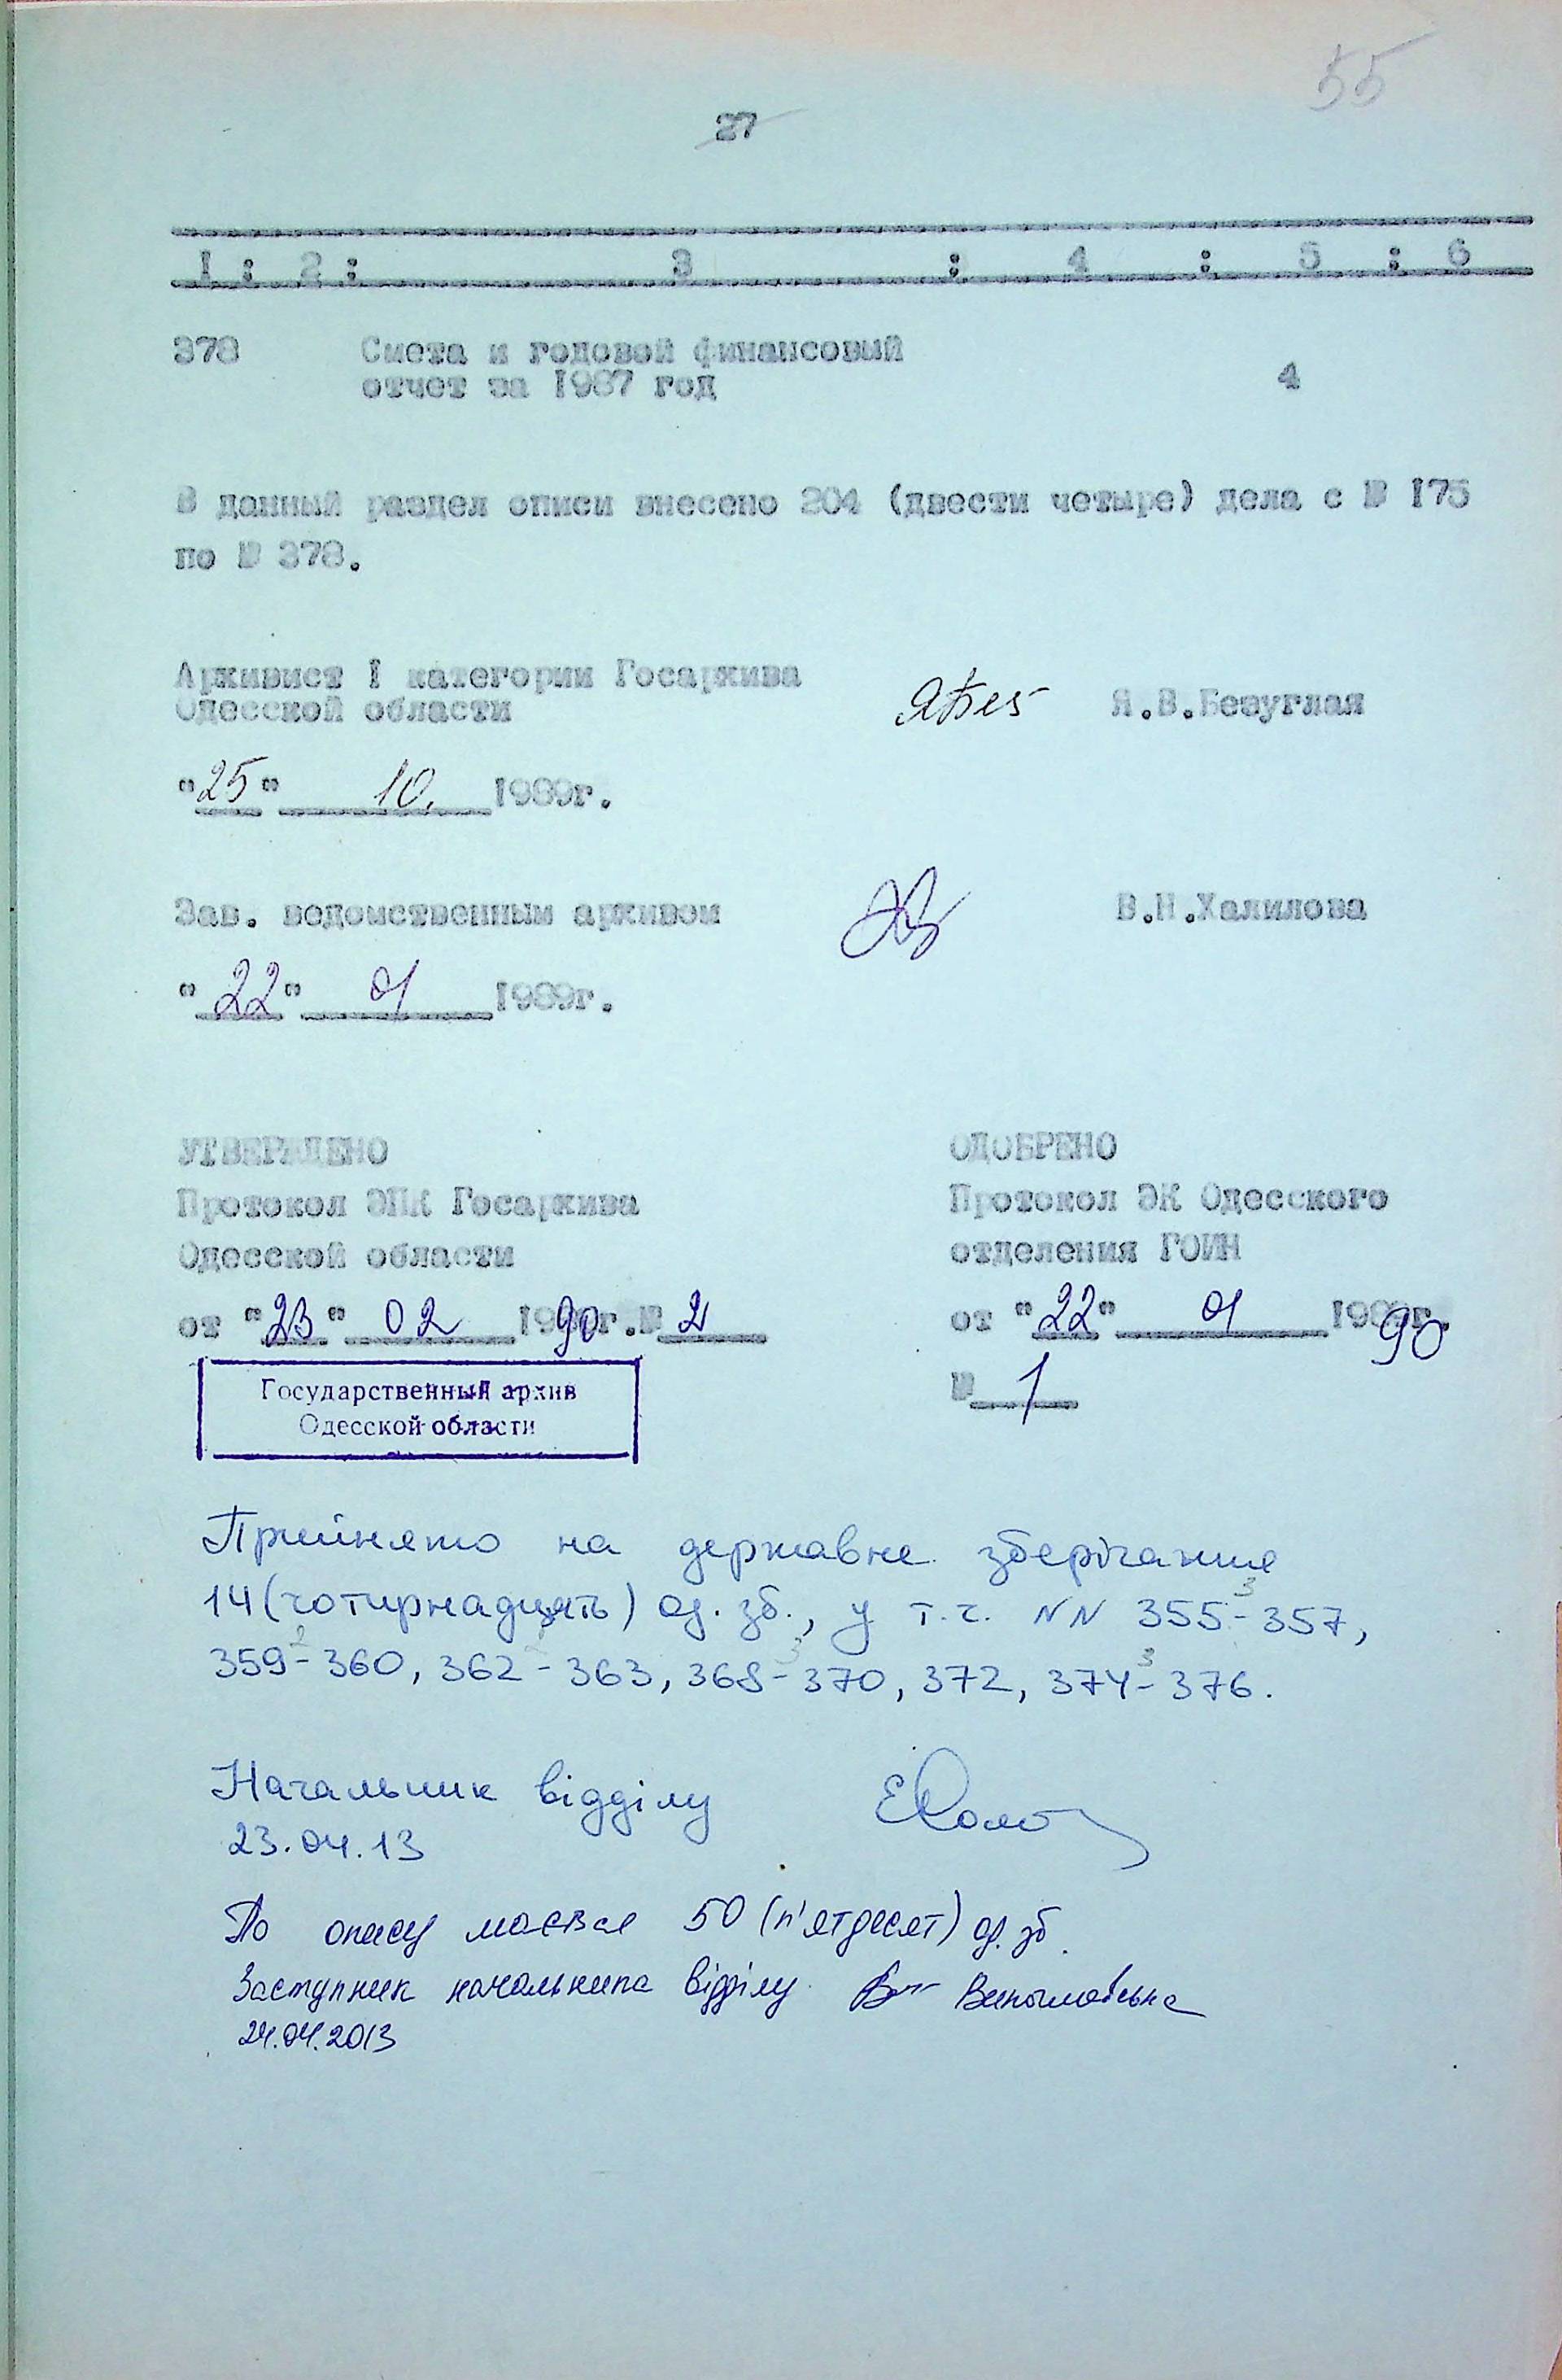 55
27
I : 2 : 3 : 4 : 5 : 6
378 Смета и годовой финансовый
отчет за I987 год 4
В данный раздел описи внесено 204 (двести четыре) дела с № I75
по № 378.
Архивист I категории Госархива
Одесской области Я.В.Безуглая
"25" 10. I989г.
Зав. ведомственным архивом В.Н.Халилова
"22" 01 I989г.
УТВЕРЖДЕНО
Протокол ЭПК Госархива
Одесской области
от "23" 02 1990г. № 2
Государственный архив
Одесской области
ОДОБРЕНО
Протокол ЭК Одесского
отделения ГОИН
от "22" 01 1990г.
№ 1
Прийнято на державне зберігання
14 (чотирнадцять) од. зб., у т.ч. NN 355-³357,
359-²360, 362-363, 368-³370, 372, 374-³376.
Начальник відділу
23.04.13
По опису мається 50 (п'ятдесят) од. зб.
Заступник начальника відділу
24.04.2013